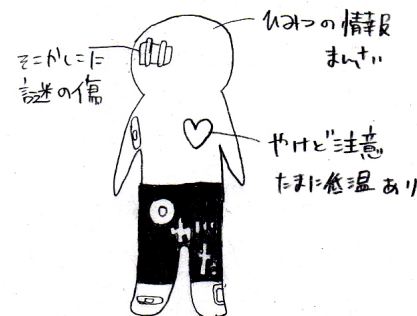 ひみつの情報
まんさい
そこかしこに
謎の傷
やけど注意
たまに低温あり